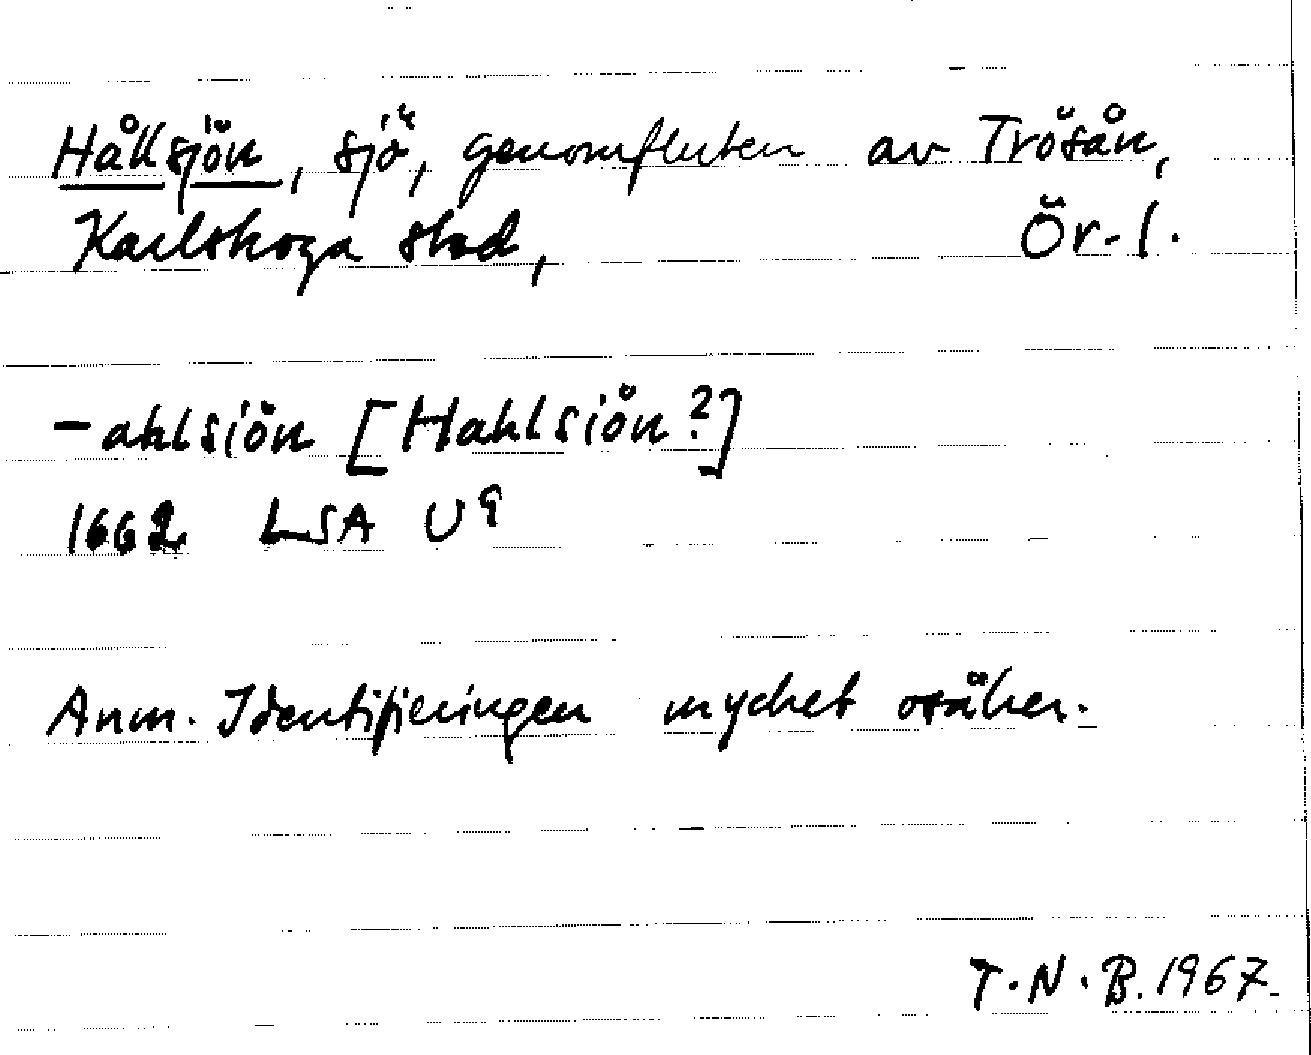 Hålsjön, sjö, genomfluten av Trösån,
Karlskoga stad, Ör-l.
-ahlsiön [Hahlsiön?]
1662 LSA U9
Anm. Identifieringen mycket osäker.
T.N.B. 1967.